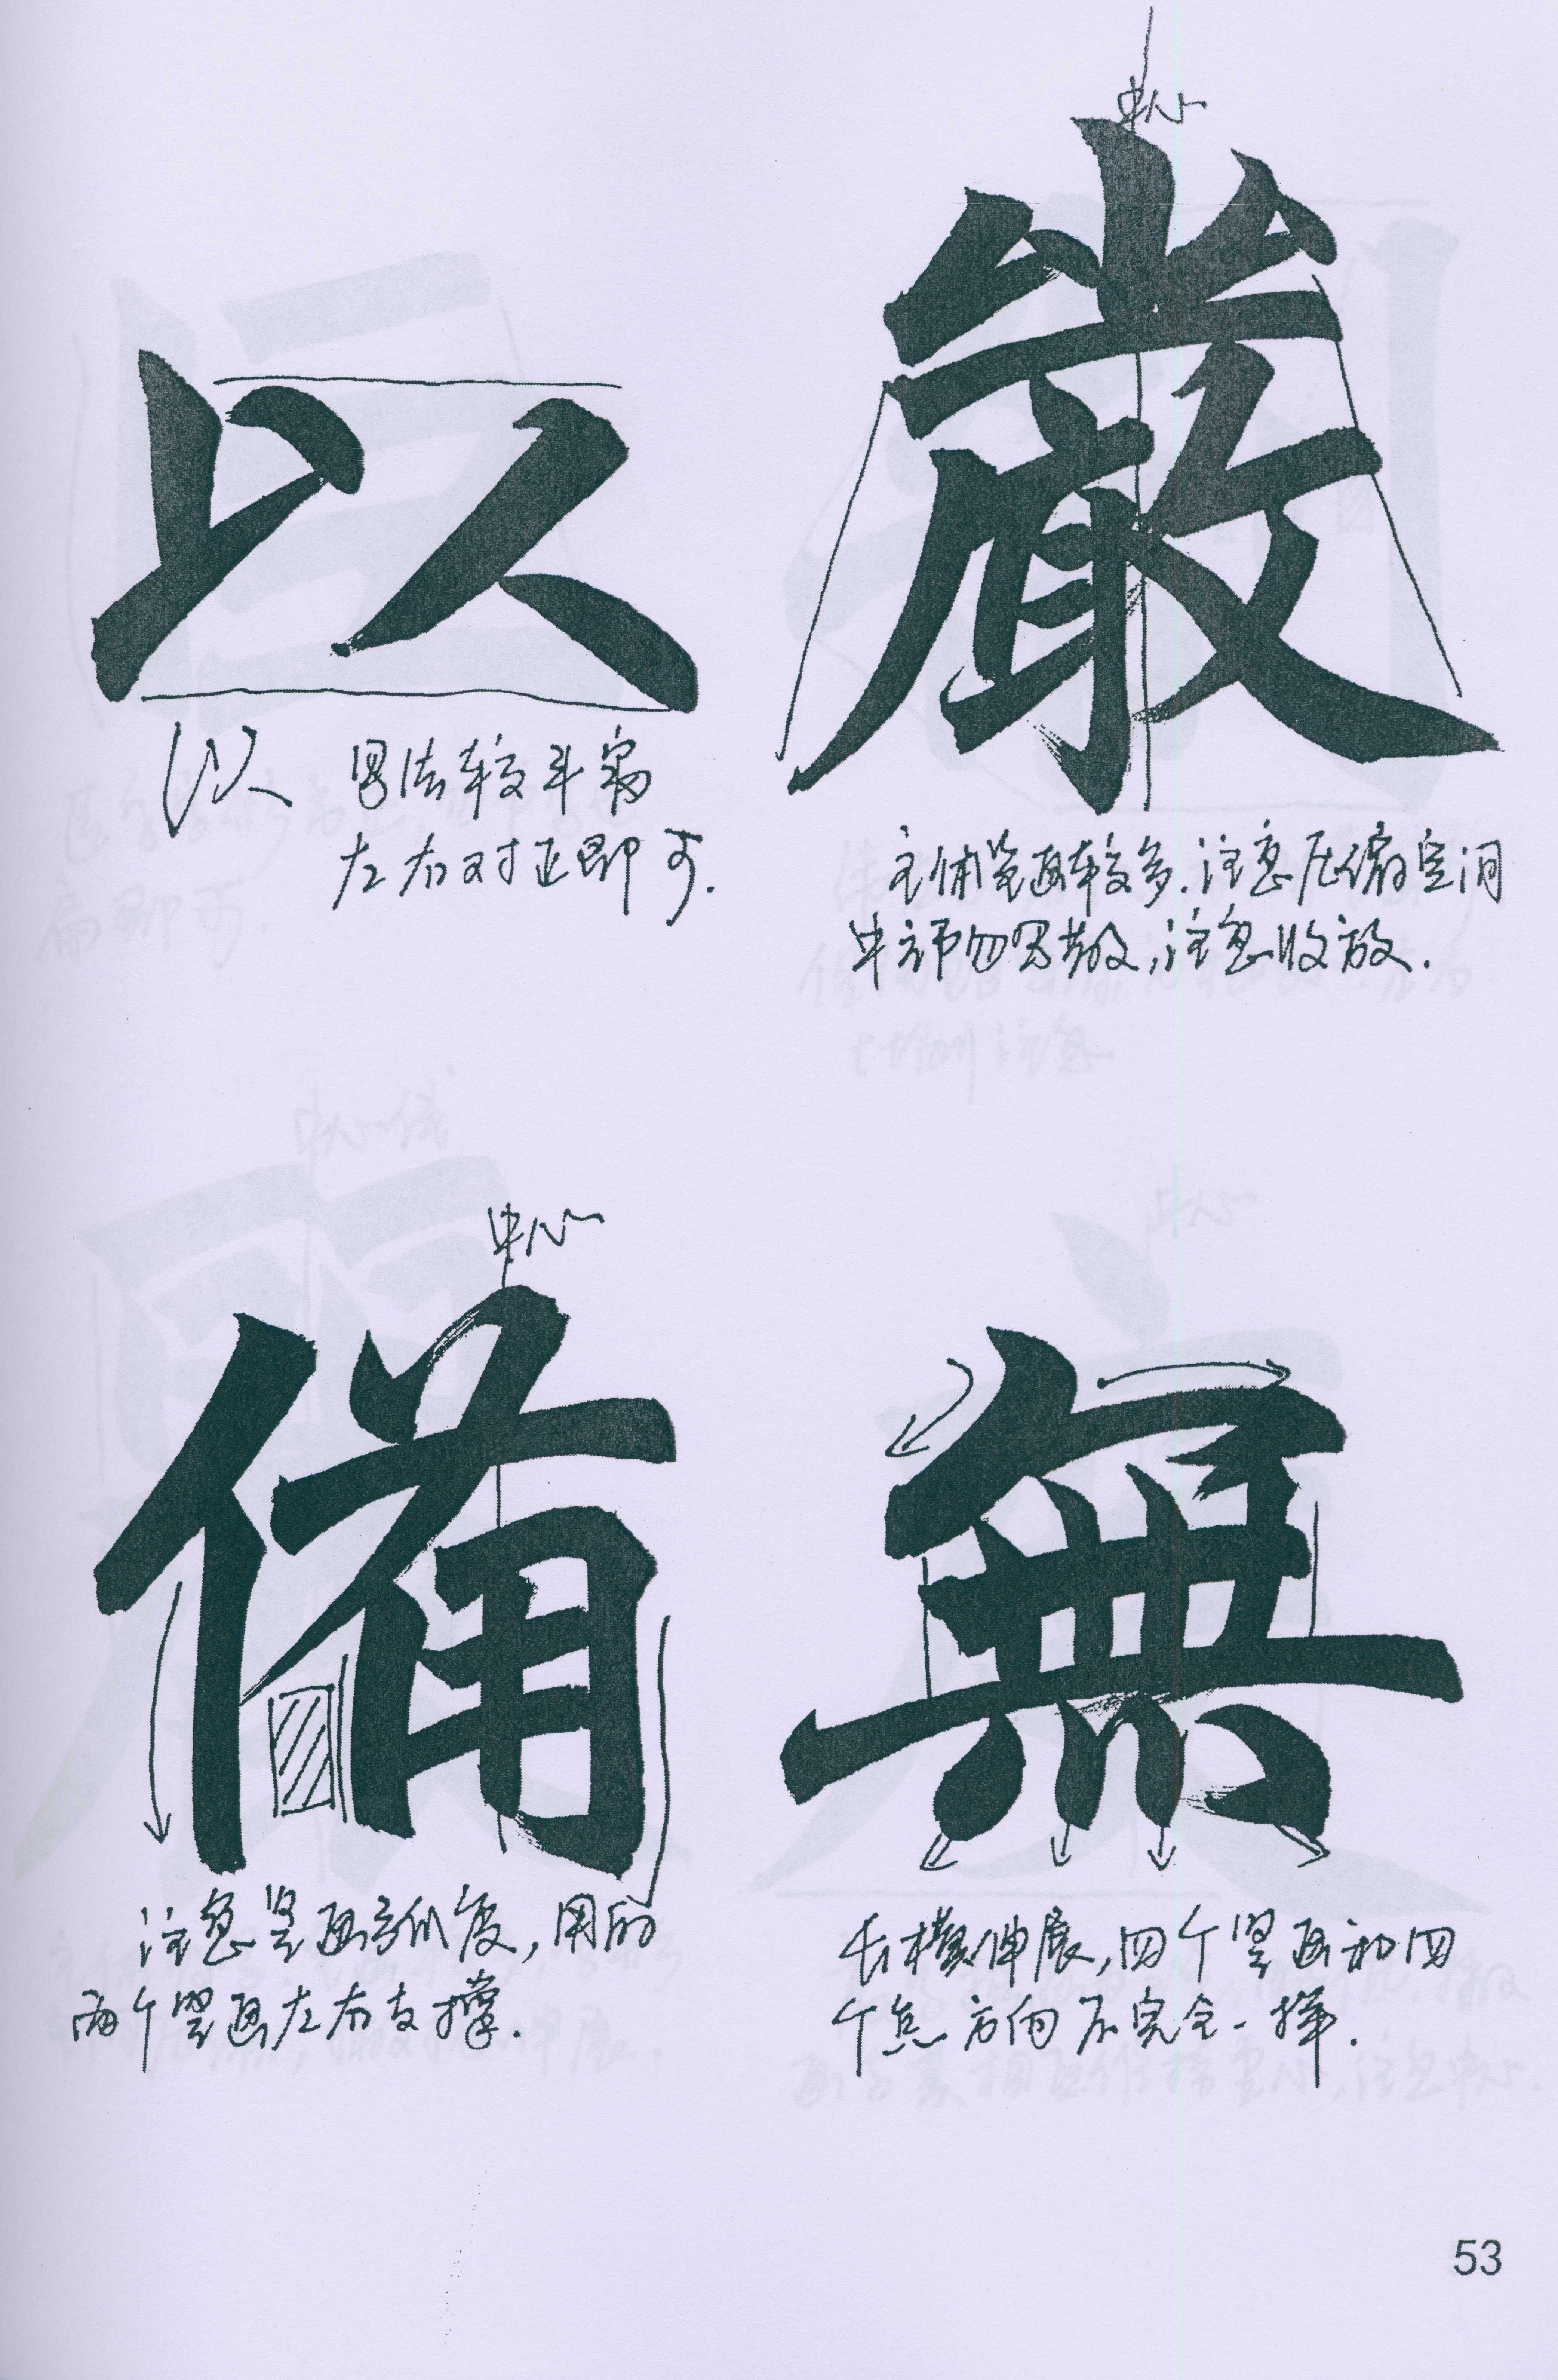 中心
嚴
主体笔画较多.注意压缩空间
中部勿写散,注意收放.
以
以 写法较斗篇
左右对正即可.
中心
備
注意竖画弧度,用的
两个竖画左右支撑.
無
长横伸展,四个竖画和四
个点方向不完全一样.
53